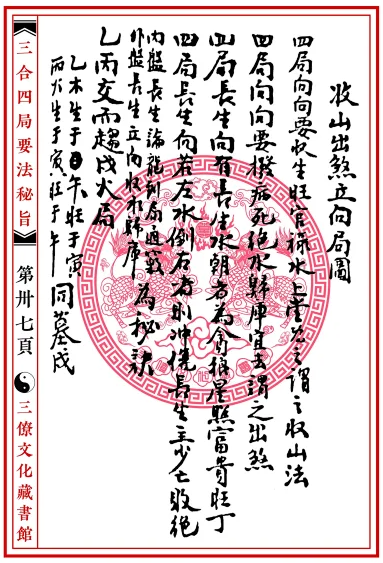 收山出煞立向局圖
四局向向要收生旺官祿水上堂為之謂之收山法
四局向向要撥病死絕水歸庫宜去謂之出煞
四局長生向有長生水朝者為貪狼星照富貴旺丁
四局長生向若左水倒右者則冲倒長生主少亡敗絕
內盤長生論龍到局過竅為秘訣
外盤長生立向收水歸庫
乙丙交而趨戌火局
乙木生于午旺于寅
丙火生于寅旺于午
同墓戌
三合四局要法秘旨
第卅七頁
三僚文化藏書館